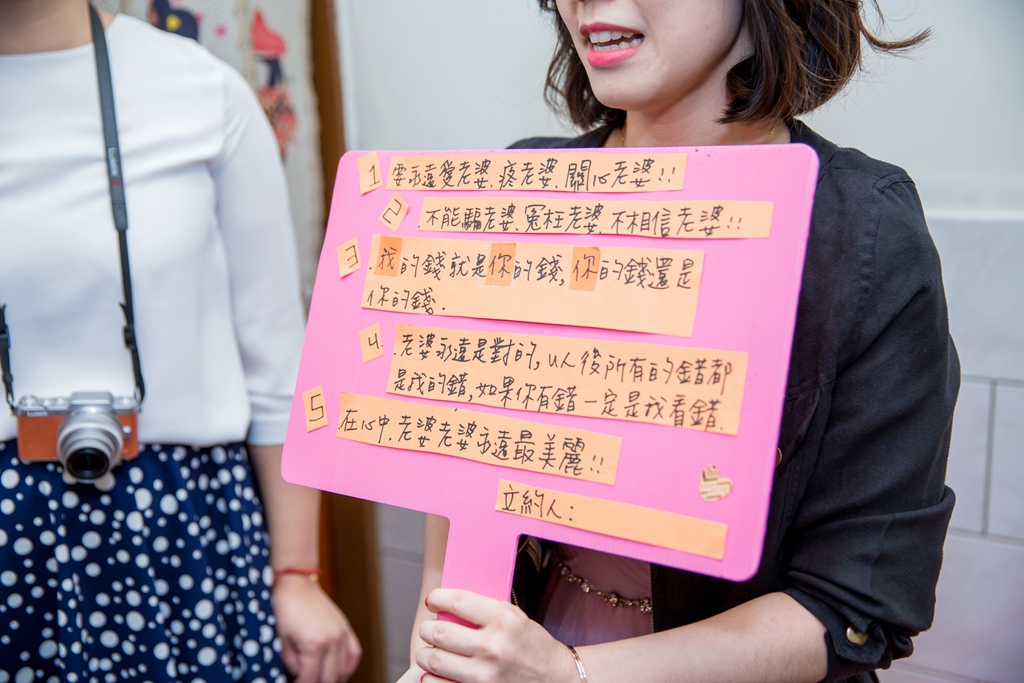 1 要永遠愛老婆.疼老婆.關心老婆!!
2 不能騙老婆.冤枉老婆.不相信老婆!!
3 .我的錢就是你的錢,你的錢還是
你的錢.
4 .老婆永遠是對的,以後所有的錯都
是我的錯,如果你有錯一定是我看錯.
5 在心中.老婆老婆永遠最美麗!!
立約人:
LUMIX